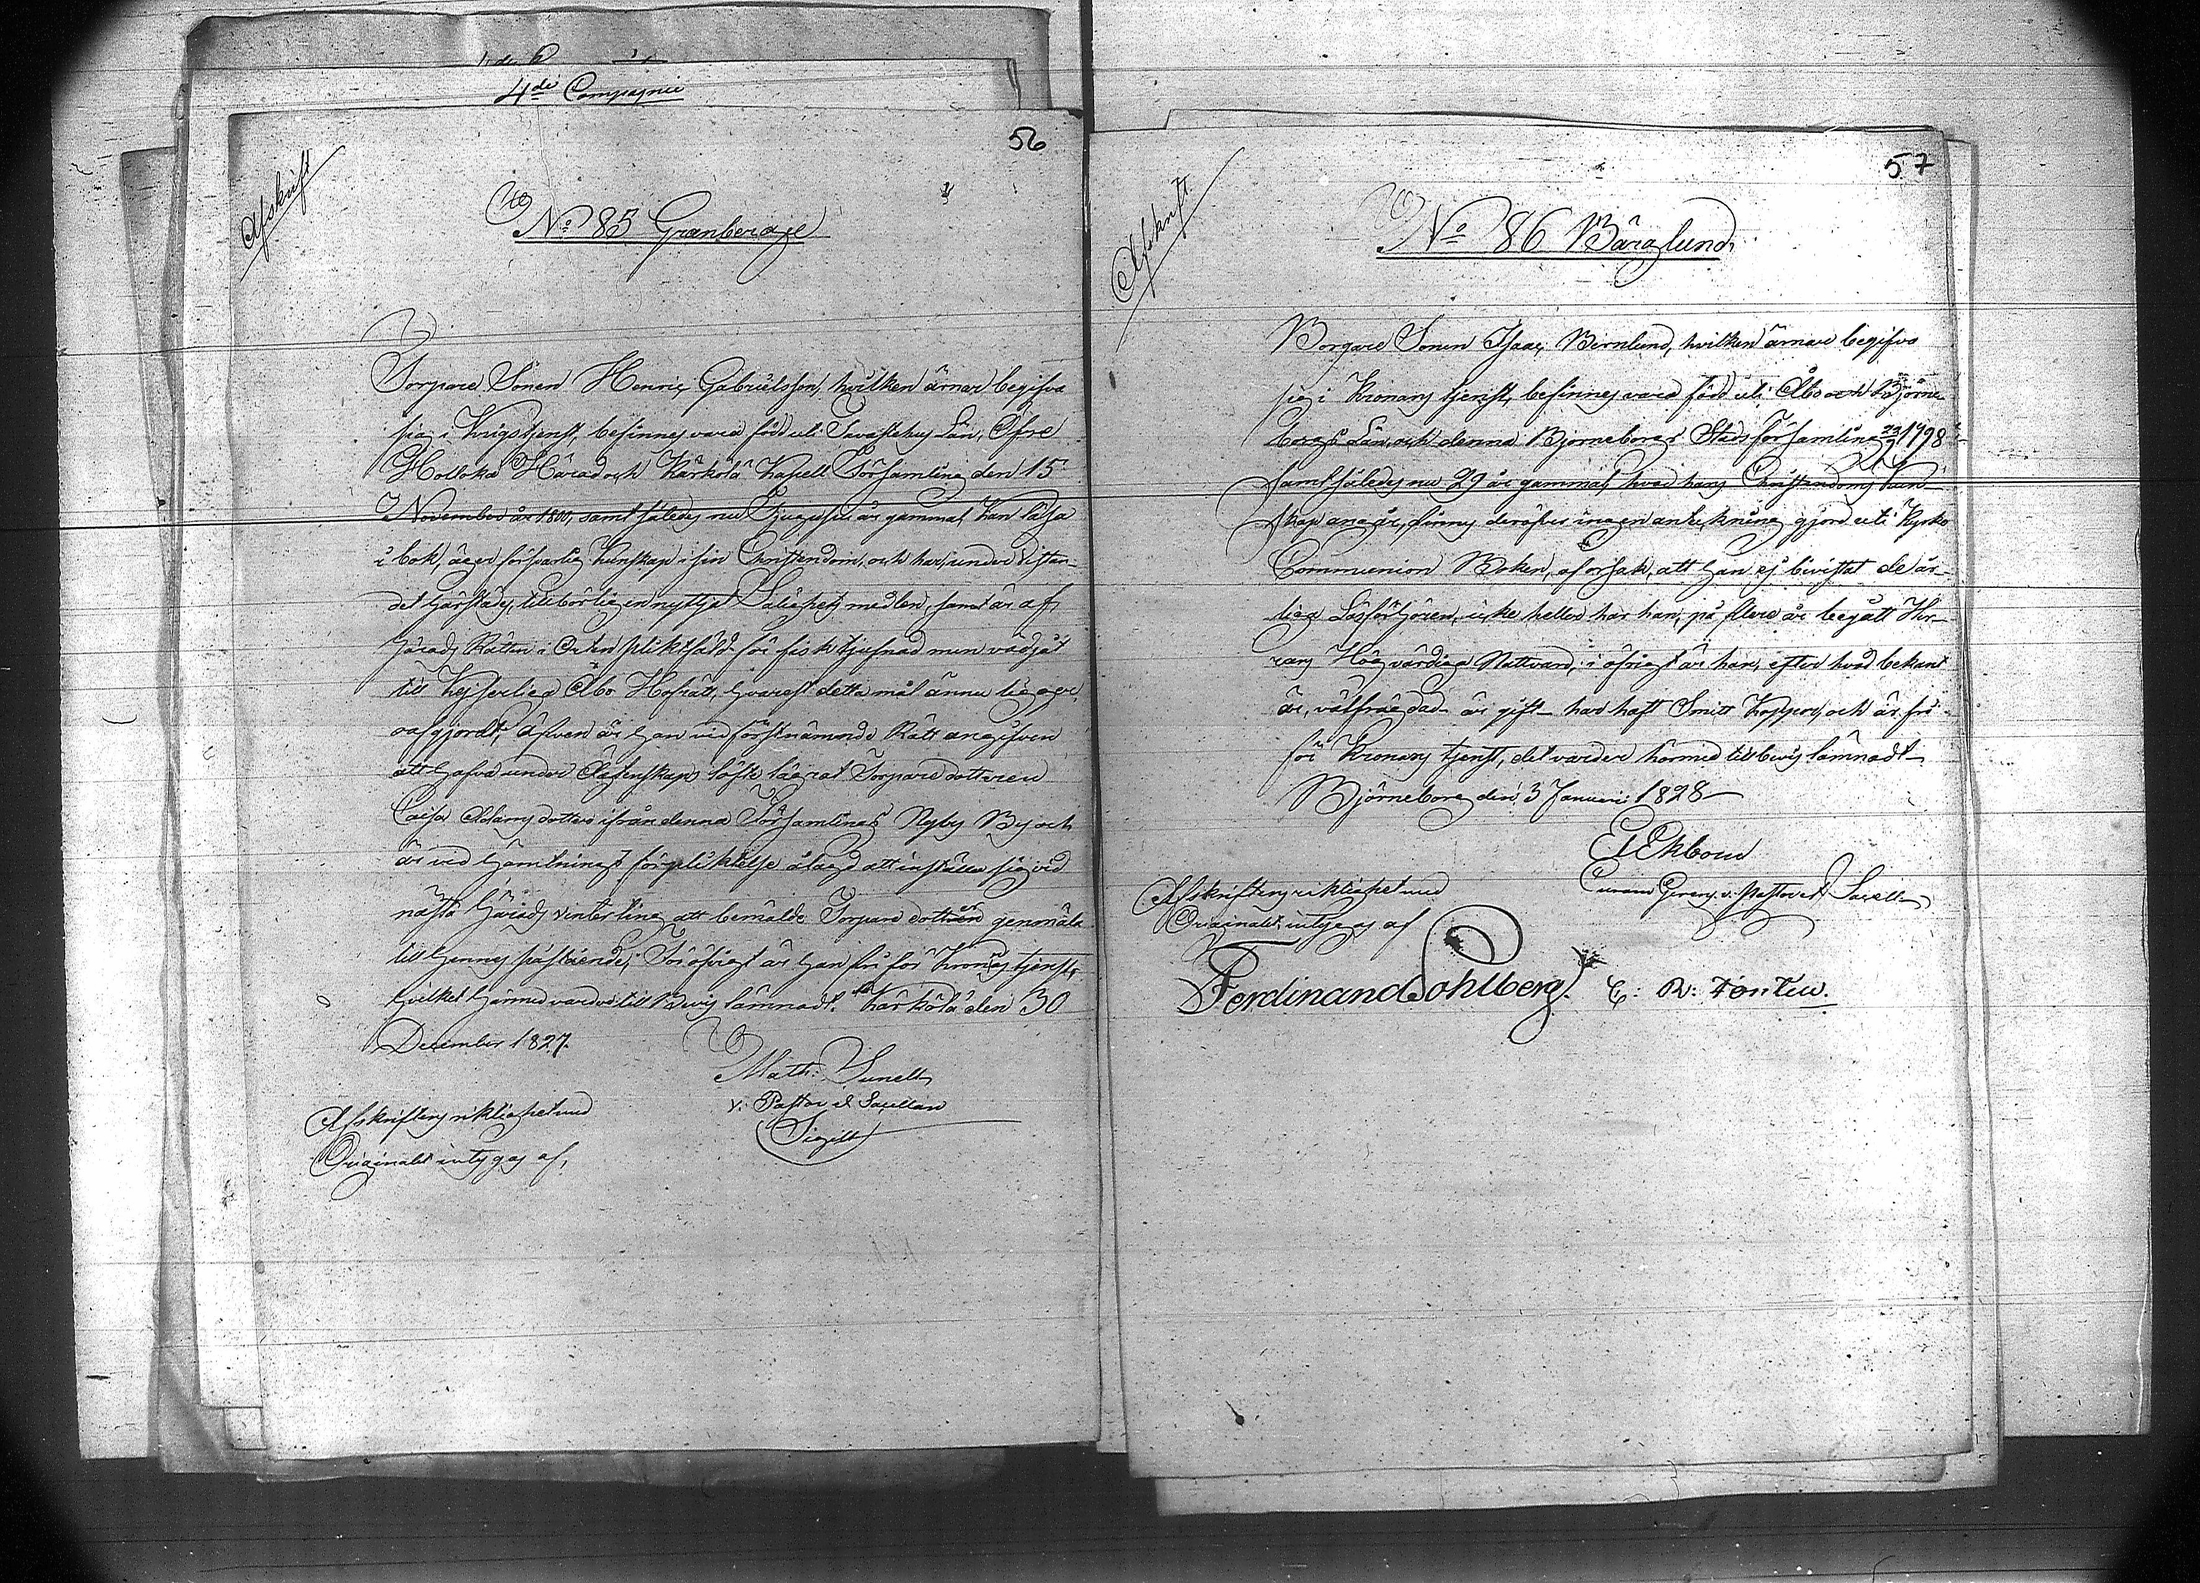 4de Compagnie
56
Afskrift
No 85 Granberg
Torpare Sonen Henric Gabrielsson, hvilken ärnar begifva
sig i Krigstjenst, befinnes vara född uti Tavastehus Län, Öfre
Hollola Härad och Kärkölä Kapell Församling den 15
November år 1800, samt således nu Tjugusju år gammal, kan läsa
i bok, äger försvarlig kunskap i sin Christendom, och har, under vistan-
det härstädes, tillbörligen nyttjat Salighets medlen, samt är af
Härads Rätten i Orten pliktfäld för fisktjufnad men vädjat
till Kejserliga Åbo Hofrätt, hvarest detta mål ännu ligger
oafgjordt; Äfven är han vid förstnämnde Rätt angifven
att hafva under Äktenskaps löfte lägrat Torpare dottren
Caisa Adamsdotter ifrån denna Församlings Nyby By och
är vid hämtnings förpliktelse ålagd att inställa sig vid
nästa Härads vinterting att bemälde Torpare dotter genmäla
till hennes påstående; För öfrigt är han fri för Kronans tjenst,
hvilket härmed varder till Bevis lämnadt. Kärkölä den 30
December 1827.
Math: Sunell
v: Pastor et Sacellan
(Sigill)
Afskriftens riktighet med
Originalet intygas af,
57
Afskrift
No 86 Bärglund
Borgare Sonen Isaac Bernlund, hvilken ärnar begifva
sig i Kronans tjenst, befinnes vara född uti Åbo och Björne-
borgs Län, och denna Björneborgs Stads församling 1798
samt således nu 29 år gammal, hvad hans Christendoms Kun-
skap angår, finnes deröfver ingen anteckning gjord uti Kyrko
Communion Boken, af orsak, att han ej bevistat de år-
liga Läsförhören, icke heller har han, på flere år begått Her-
rans Högvärdiga Nattvard; i öfrigt är han, efter hvad bekant
är, välfrägdad - är gift - har haft Smitt Koppor, och är fri
för Kronans tjenst, det varder härmed till bevis lämnadt -
Björneborg den 3 Januari 1828 -
Ekbom
v: Pastor et Sacell
Afskriftens riktighet med
Originalet, intygas af
Ferdinand Sohlberg. C: R: Forteu.